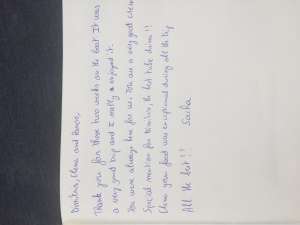 Dimitra, Elena and
Thank you for these two weeks on the boat. It was
a very good trip and I really enjoyed it.
You were always here for us. You are a very good crew
Special mention for Dimitra, the best tube driver!!
Elena your food was exceptional during all the trip
All the best!!
Sacha